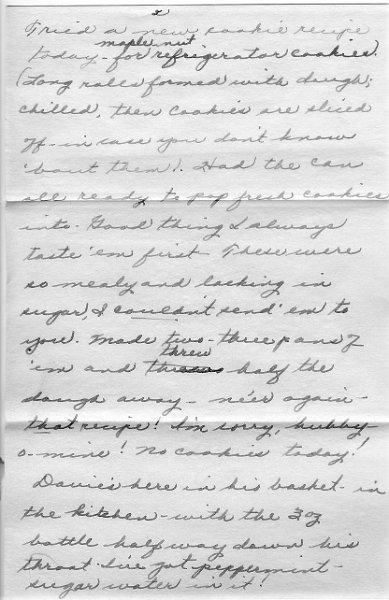 2
Tried a new cookie recipe
maple nut
today - for refrigerator cookies.
(Long rolls formed with dough;
chilled, then cookies are sliced
off - in case you don't know
'bout them). Had the can
all ready to pop fresh cookies
into. Good thing I always
taste 'em first - These were
so mealy and lacking in
sugar I couldn't send 'em to
you. Made two - three pans of
threw
'em and half the
dough away - ne'er again -
that recipe! I'm sorry, hubby-
o-mine! No cookies today!
Davie's here in his basket - in
the kitchen - with the 3 oz
bottle half way down his
throat. I've got peppermint -
sugar water in it!